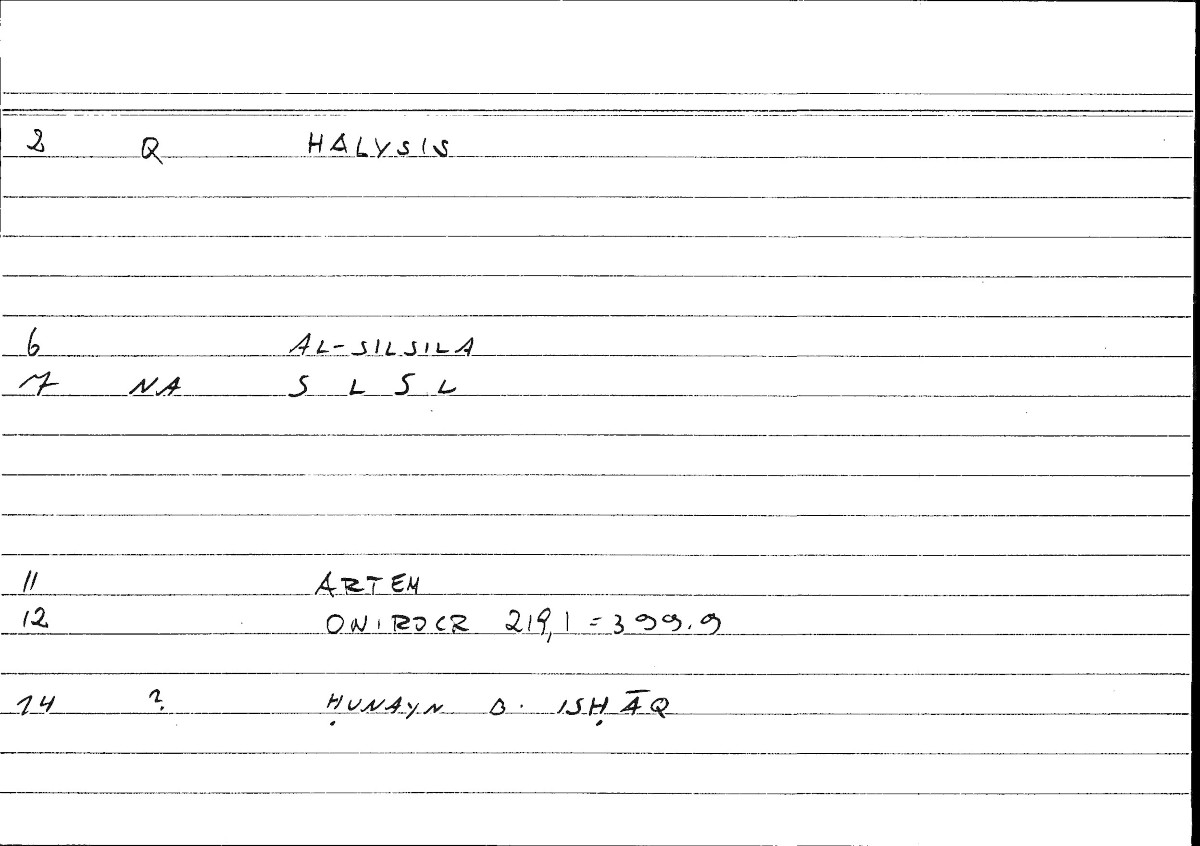 2 Q HALYSIS
6 AL-SILSILA
7 NA S L S L
11 ARTEM
12 ONIROCR 219,1 = 399.9
14 ? ḤUNAYN B. ISḤĀQ